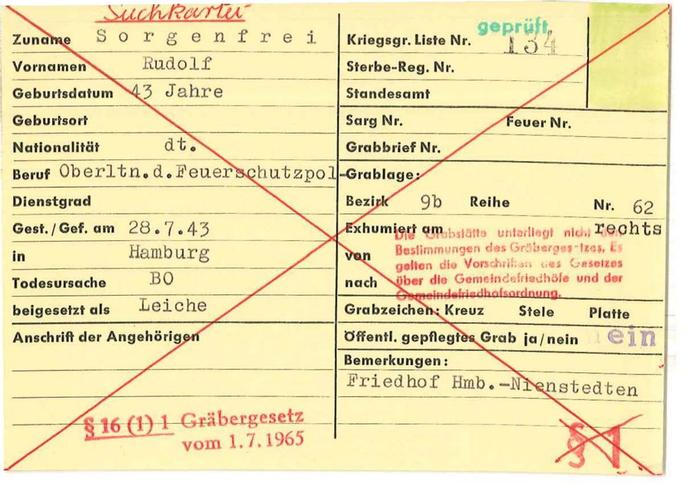 Suchkartei
Zuname Sorgenfrei
Vornamen Rudolf
Geburtsdatum 43 Jahre
Geburtsort
Nationalität dt.
Beruf Oberltn.d.Feuerschutzpol
Dienstgrad
Gest./Gef. am 28.7.43
in Hamburg
Todesursache BO
beigesetzt als Leiche
Anschrift der Angehörigen
§ 16 (1) 1 Gräbergesetz
vom 1.7.1965
geprüft
Kriegsgr. Liste Nr. 134
Sterbe-Reg. Nr.
Standesamt
Sarg Nr. Feuer Nr.
Grabbrief Nr.
Grablage:
Bezirk 9b Reihe Nr. 62
rechts
Exhumiert am
von
nach
Die Grabstätte unterliegt nicht den
Bestimmungen des Gräbergesetzes. Es
gelten die Vorschriften des Gesetzes
über die Gemeindefriedhöfe und der
Gemeindefriedhofsordnung.
Grabzeichen: Kreuz Stele Platte
Öffentl. gepflegtes Grab ja/nein ein
Bemerkungen:
Friedhof Hmb.-Nienstedten
§ 1